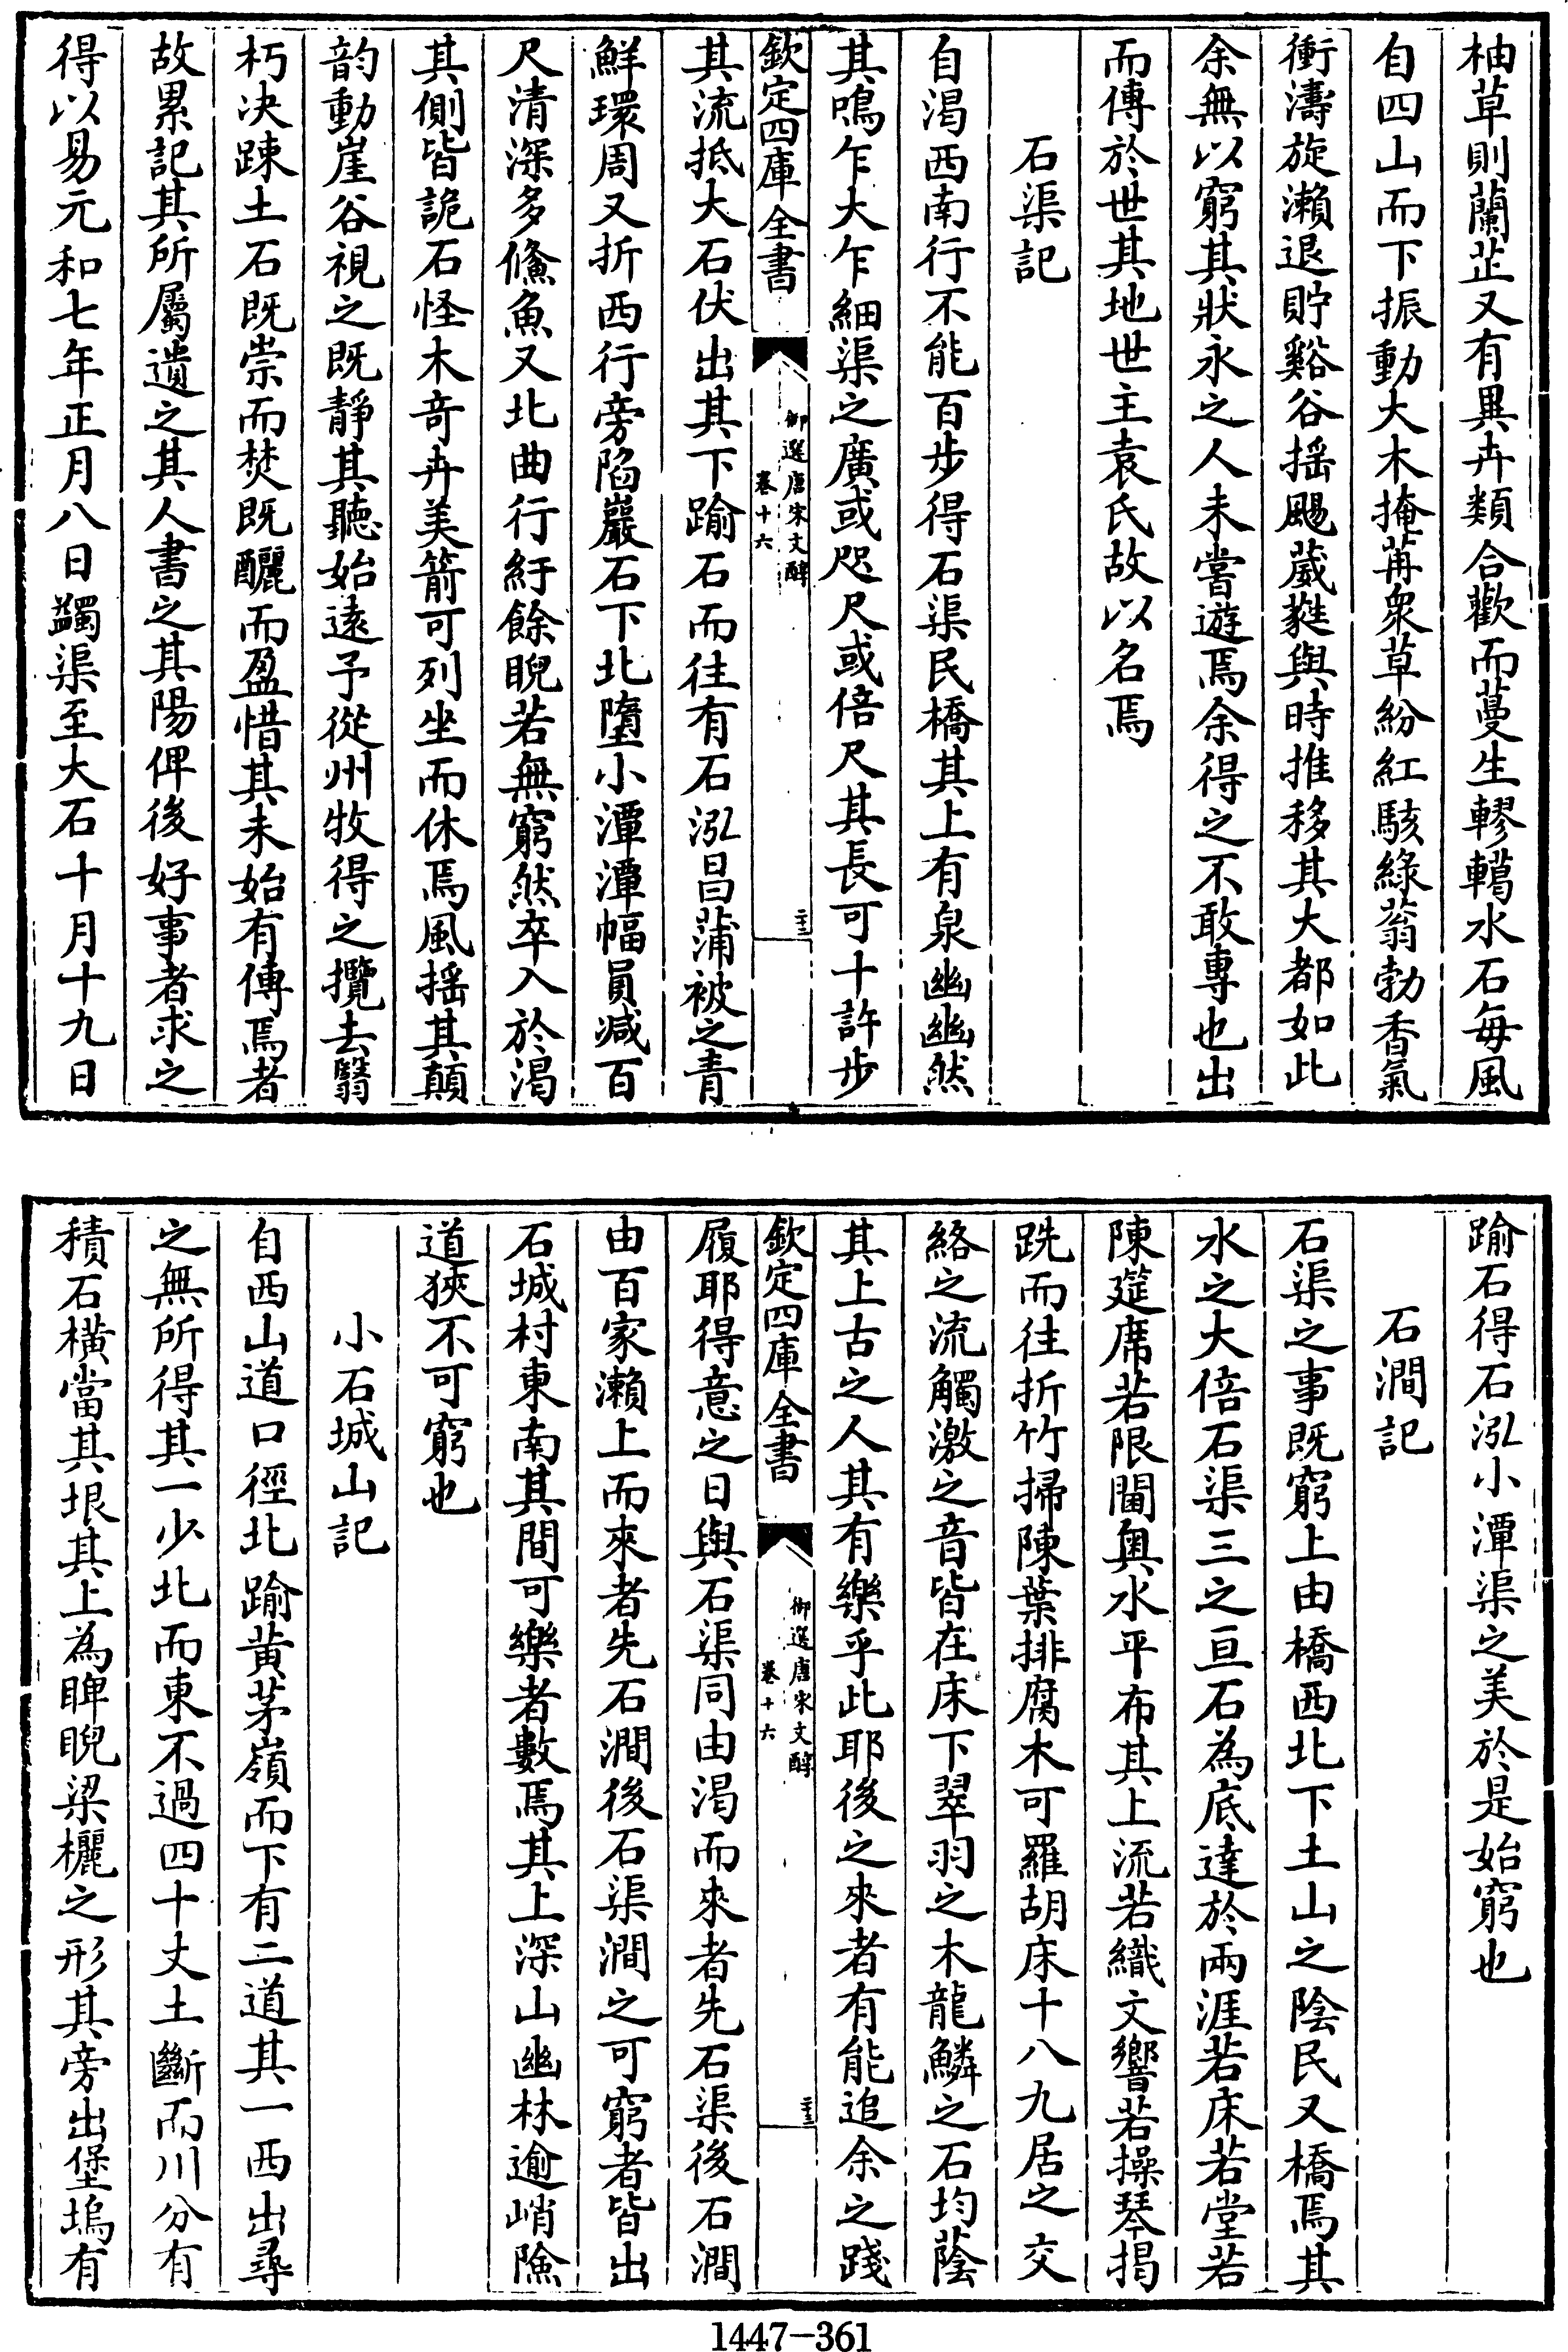 柚草則蘭芷又有異卉類合歡而蔓生轇轕水石每風
自四山而下振動大木掩苒衆草紛紅駭綠蓊勃香氣
衝濤旋瀬退貯谿谷揺颺葳蕤與時推移其大都如此
余無以窮其狀永之人未嘗遊焉余得之不敢專也出
而傳於世其地世主袁氏故以名焉
石渠記
自渴西南行不能百步得石渠民橋其上有泉幽幽然
其鳴乍大乍細渠之廣或咫尺或倍尺其長可十許步
欽定四庫全書
御選唐宋文醇
卷十六
二十三
其流抵大石伏出其下踰石而往有石泓昌蒲被之青
鮮環周又折西行旁陷巖石下北墮小潭潭幅員減百
尺清深多鯈魚又北曲行紆餘睨若無窮然卒入於渴
其側皆詭石怪木奇卉美箭可列坐而休焉風揺其顛
韵動崖谷視之既靜其聽始遠予從州牧得之攬去翳
朽决疎土石既崇而焚既釃而盈惜其未始有傳焉者
故累記其所屬遺之其人書之其陽俾後好事者求之
得以易元和七年正月八日蠲渠至大石十月十九日
踰石得石泓小潭渠之美於是始窮也
石澗記
石渠之事既窮上由橋西北下土山之陰民又橋焉其
水之大倍石渠三之亘石為底達於兩涯若床若堂若
陳筵席若限閫奥水平布其上流若織文響若操琴揭
跣而往折竹掃陳葉排腐木可羅胡床十八九居之交
絡之流觸激之音皆在床下翠羽之木龍鱗之石均蔭
其上古之人其有樂乎此耶後之來者有能追余之踐
欽定四庫全書
御選唐宋文醇
卷十六
二十三
履耶得意之日與石渠同由渴而來者先石渠後石澗
由百家瀬上而來者先石澗後石渠澗之可窮者皆出
石城村東南其間可樂者數焉其上深山幽林逾峭險
道狹不可窮也
小石城山記
自西山道口徑北踰黄茅嶺而下有二道其一西出尋
之無所得其一少北而東不過四十丈土斷而川分有
積石橫當其垠其上為睥睨梁欐之形其旁出堡塢有
1447-361